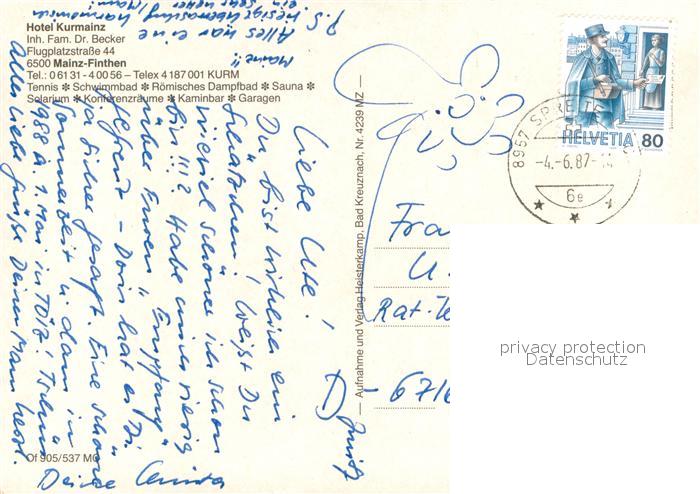 Hotel Kurmainz
Inh. Fam. Dr. Becker
Flugplatzstraße 44
6500 Mainz-Finthen
Tel.: 0 61 31 - 4 00 56 – Telex 4 187 001 KURM
Tennis ✷ Schwimmbad ✷ Römisches Dampfbad ✷ Sauna ✷
Solarium ✷ Konferenzräume ✷ Kaminbar ✷ Garagen
P.S.
Alles war eine
Liebe Ute!
Du bist wirklich ein
Schätzchen! Weißt Du
wieviel schöner ich schon
bin!!!? Habe mich riesig
über Euren "
gefreut - Doris hat es Dir
ja sicher gesagt. Eine schöne
Sommerzeit u. dann in
1988 a. 1. Mai in TÖLZ! Tschüß
Alles Liebe grüße Deinen Mann herzl.
Deine
Of 905/537 MG
— Aufnahme und Verlag Heisterkamp, Bad Kreuznach, Nr. 4239 MZ —
HELVETIA 80
8957 SPREITE
-4.-6.87-14
6e
Frau
U.
Rat-Je
D - 6716
privacy protection
Datenschutz